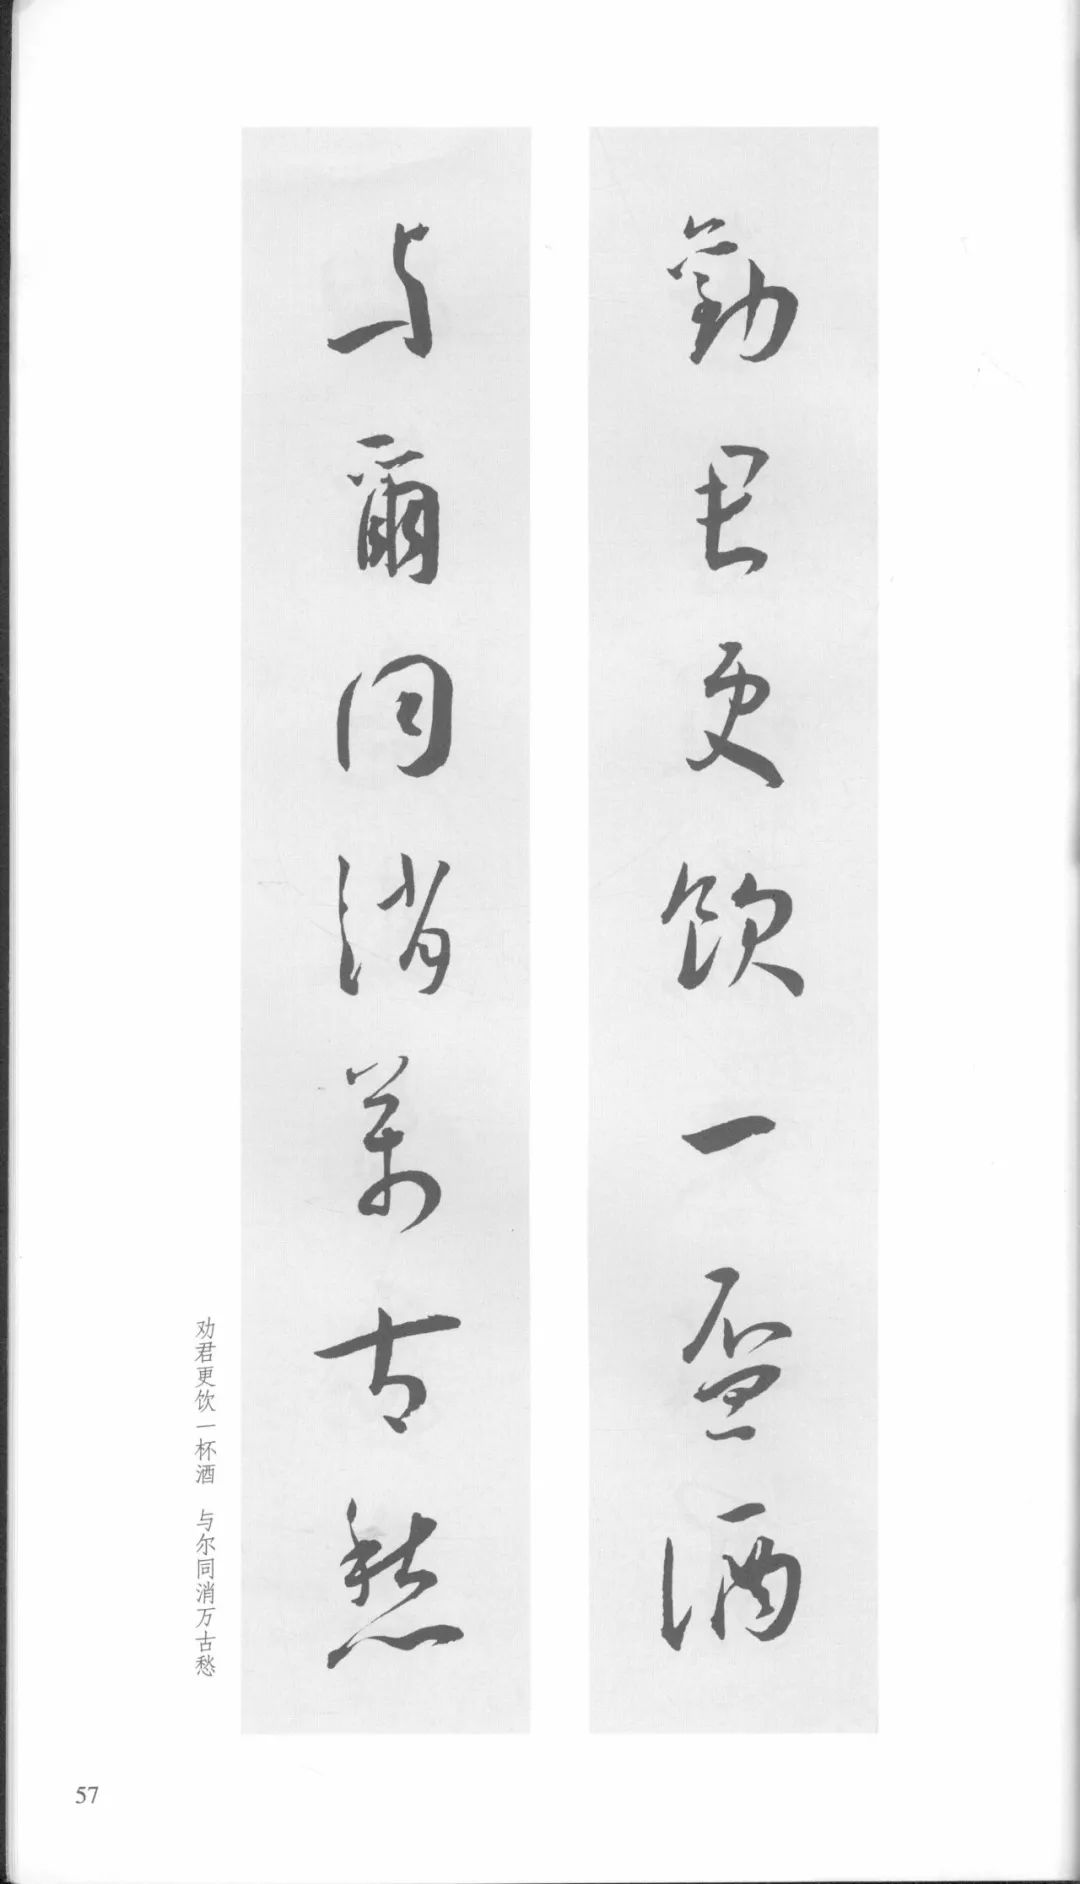 勸君更飲一盃酒
与爾同消萬古愁
劝君更饮一杯酒 与尔同消万古愁
57